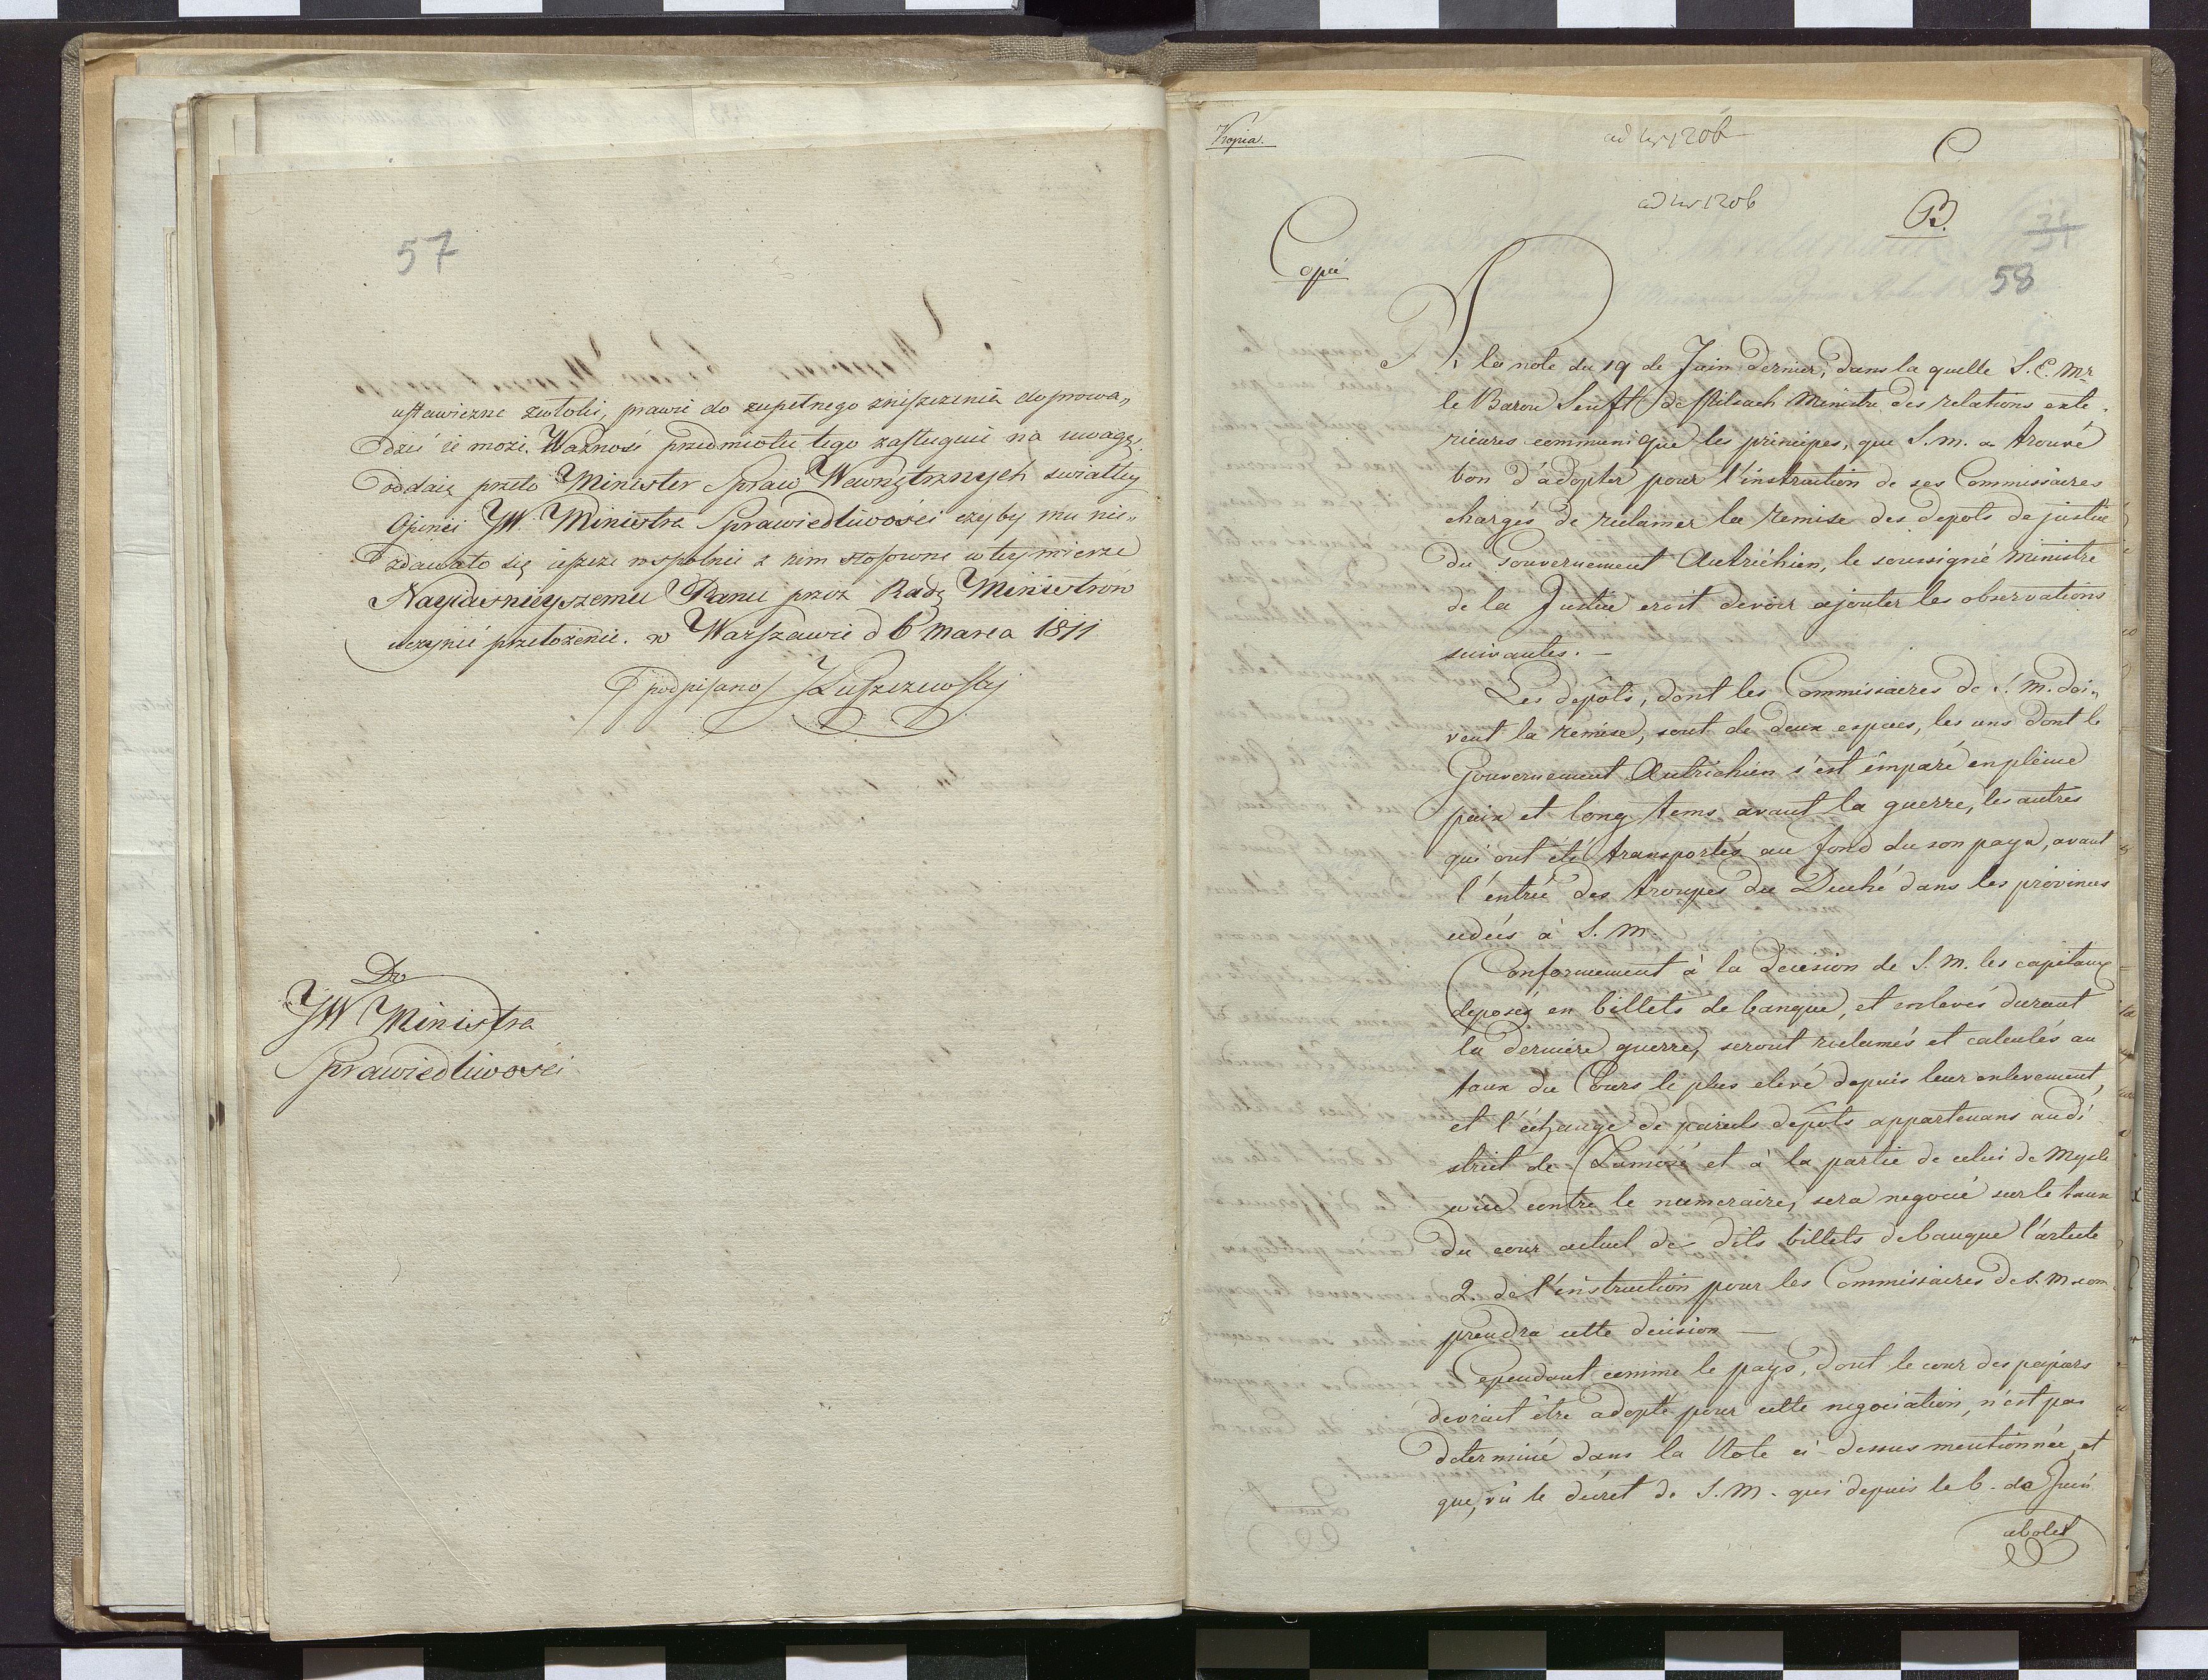 57
ustawiczne zwłoki, prawie do zupełnego zniszczenia doprowa„
dzić ie może. Ważność przedmiotu tego zasługuie na uwagę,
oddaię przeto Minister Spraw Wewnętrznych swiatłey
Opinii JW. Ministra Sprawiedliwości czyby mu nie„
zdawało się ieszcze wspolnie z nim stosowne w tey mierze
Nayiasnieyszemu Panu przez Radę Ministrów
uczynić przełożenie. w Warszawie d 6 Marca 1811
podpisano Łuszczewski
Do
JW Ministra
Sprawiedliwości
Kopia.
ad Nr 1206
ad Nr 1206
B.
58
Copié
A la note du 19 de Juin dernier, dans la quelle S.E. Mr
le Baron Senft de Pilsach Ministre des relations exte„
rieures communique les principes, que S.M. a trouvé
bon d'adopter pour l'instruction de ses Commissaires
chargés de reclamer la remise des depots de justice
du Gouvernement Autrichien, le soussigné Ministre
de la Justice croit devoir ajouter les observations
suivantes. —
Les depôts, dont les Commissaires de S. M. doi„
vent la remise, sont de deux especes, les uns dont le
Gouvernement Autrichien s'est emparé en pleine
paix et long tems avant la guerre, les autres
qui ont été transportés au fond du son pays, avant
l'entrée des troupes du Duché dans les provinces
cedées à S. M.
Conformement à la Decision de S. M. les capitaux
deposés en billets de banque, et enlevés durant
la derniere guerre, seront reclamés et calculés au
taux du Cours le plus elevé depuis leur enlevement,
et l'échange de pareils depôts appartenans au di
strict de Zamość et à la partie de celui de Mysle
nice contre le numeraire, sera negocié sur le taux
du cour actuel de dits billets de banque l'article
2. de l'instruction pour les Commissaires de S. M. com
prendra cette decision —
Cependant comme le pays, dont le cour des papiers
devrait être adopté pour cette negociation, n'est pas
determiné dans la Note ci-dessus mentionnée, et
que, vû le decret de S. M. qui depuis le 6. de Juin
abolit